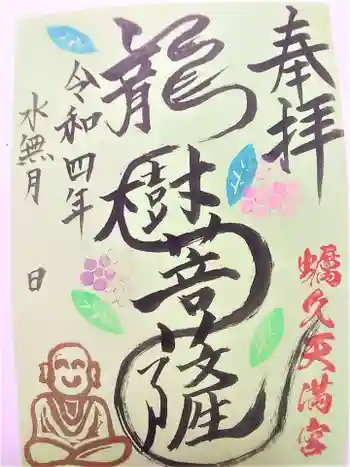 奉拝
龍樹菩薩
令和四年
水無月 日
蠣久天満宮